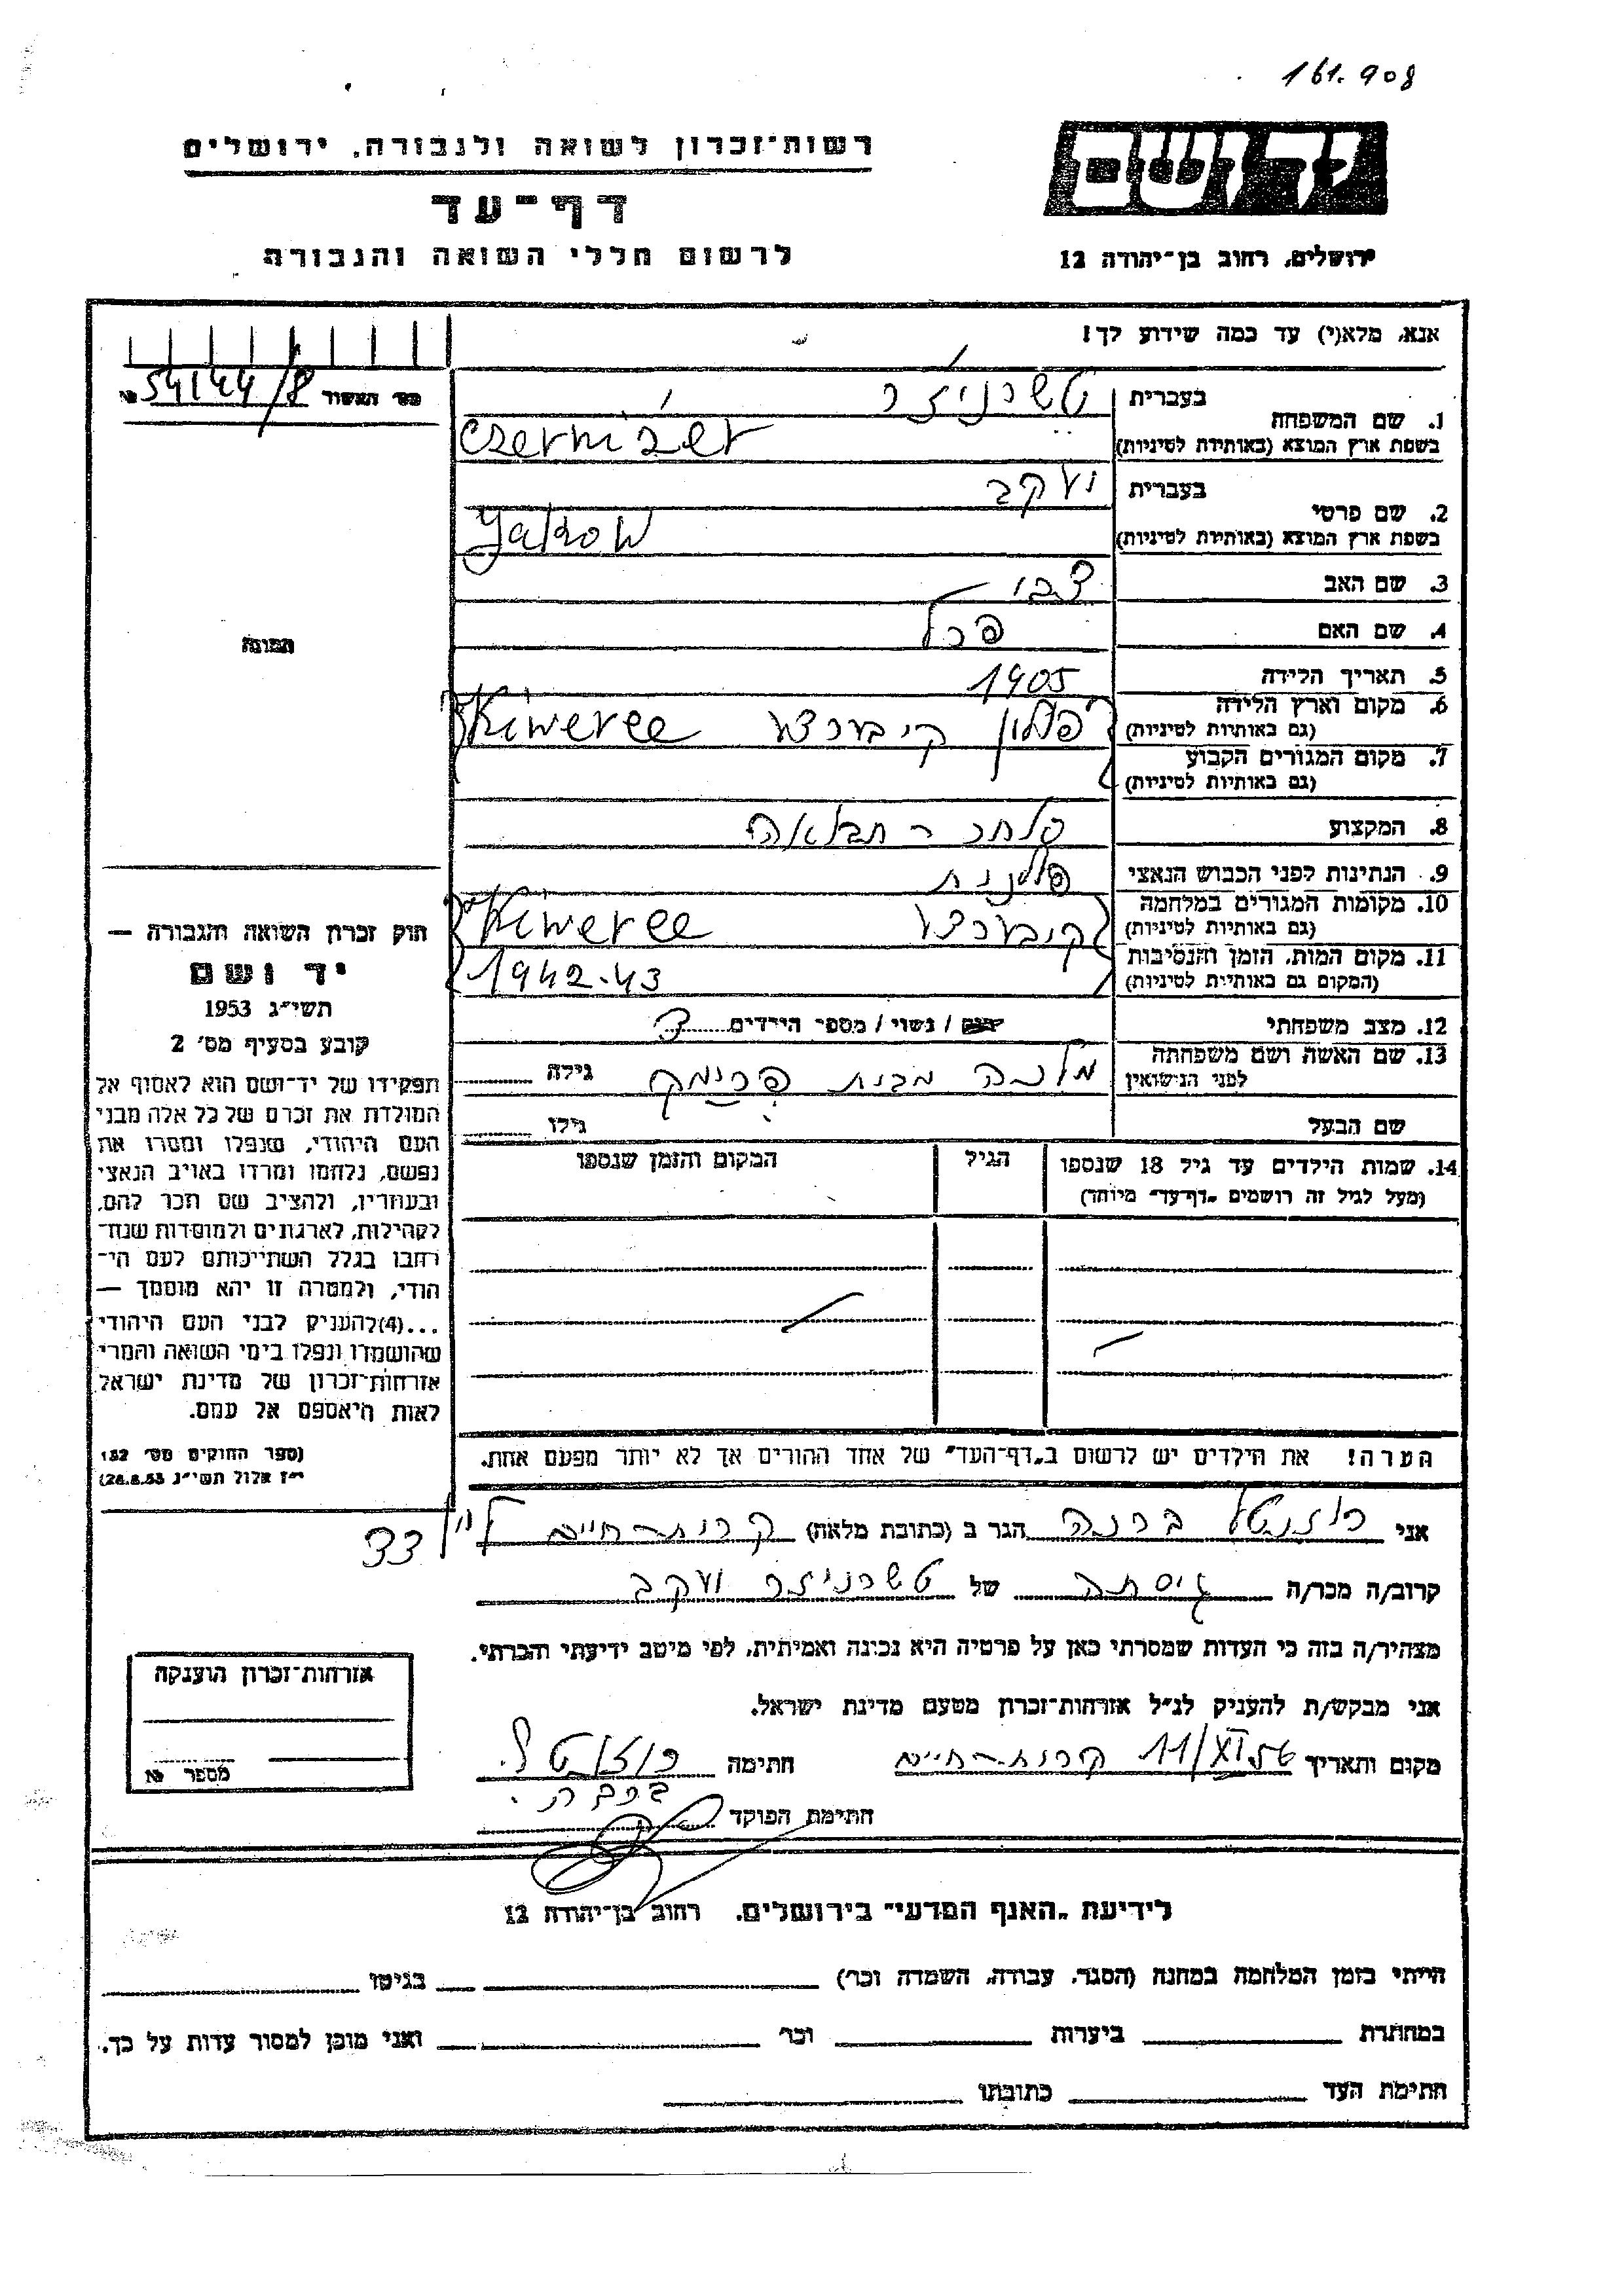 161.908
יד ושם
ירושלים, רחוב בן־יהודה 12
רשות־זכרון לשואה ולגבורה, ירושלים
דף־עד
לרשום חללי השואה והגבורה
אנא, מלא(י) עד כמה שידוע לך!
מס׳ האשור 54144/8 №
1. שם המשפחה
בעברית טשרניזר
בשפת ארץ המוצא (באותיות לטיניות) Czernizer
2. שם פרטי
בעברית יעקב
בשפת ארץ המוצא (באותיות לטיניות) Jakow
3. שם האב צבי
4. שם האם פרל
5. תאריך הלידה 1905
6. מקום וארץ הלידה
(גם באותיות לטיניות) פולין קיברצי Kiweree
7. מקום המגורים הקבוע
(גם באותיות לטיניות)
8. המקצוע סוחר - תבואה
9. הנתינות לפני הכבוש הנאצי פולנית
10. מקומות המגורים במלחמה
(גם באותיות לטיניות) קיברצי Kiweree
11. מקום המות, הזמן והנסיבות
(המקום גם באותיות לטיניות) 1942-43
12. מצב משפחתי רווק / נשוי / מספר הילדים 3
13. שם האשה ושם משפחתה
לפני הנישואין מלכה מבית פרימק גילה
שם הבעל גילו
14. שמות הילדים עד גיל 18 שנספו
(מעל לגיל זה רושמים „דף־עד” מיוחד)
הגיל
המקום והזמן שנספו
הערה! את הילדים יש לרשום ב„דף־העד” של אחד ההורים אך לא יותר מפעם אחת.
התמונה
חוק זכרון השואה והגבורה —
יד ושם
תשי״ג 1953
קובע בסעיף מס׳ 2
תפקידו של יד־ושם הוא לאסוף אל
המולדת את זכרם של כל אלה מבני
העם היהודי, שנפלו ומסרו את
נפשם, נלחמו ומרדו באויב הנאצי
ובעוזריו, ולהציב שם וזכר להם,
לקהילות, לארגונים ולמוסדות שנח־
רבו בגלל השתייכותם לעם הי־
הודי, ולמטרה זו יהא מוסמך —
...(4)להעניק לבני העם היהודי
שהושמדו ונפלו בימי השואה והמרי
אזרחות־זכרון של מדינת ישראל
לאות היאספם אל עמם.
(ספר החוקים מס׳ 132
י״ז אלול תשי״ג 28.8.53)
אני רוזנטל ברכה הגר ב (כתובת מלאה) קרית-חיים 33
קרוב/ה מכר/ה גיסתה של טשרניזר יעקב
מצהיר/ה בזה כי העדות שמסרתי כאן על פרטיה היא נכונה ואמיתית, לפי מיטב ידיעתי והכרתי.
אני מבקש/ת להעניק לנ״ל אזרחות־זכרון מטעם מדינת ישראל.
מקום ותאריך קרית-חיים 11/XI חתימה רוזנטל
ברכה
חתימת הפוקד
אזרחות־זכרון הוענקה
מספר №
לידיעת „האגף המדעי” בירושלים, רחוב בן־יהודה 12
הייתי בזמן המלחמה במחנה (הסגר, עבודה, השמדה וכו׳) בגיטו
במחתרת ביערות וכו׳ ואני מוכן למסור עדות על כך.
חתימת העד כתובתו